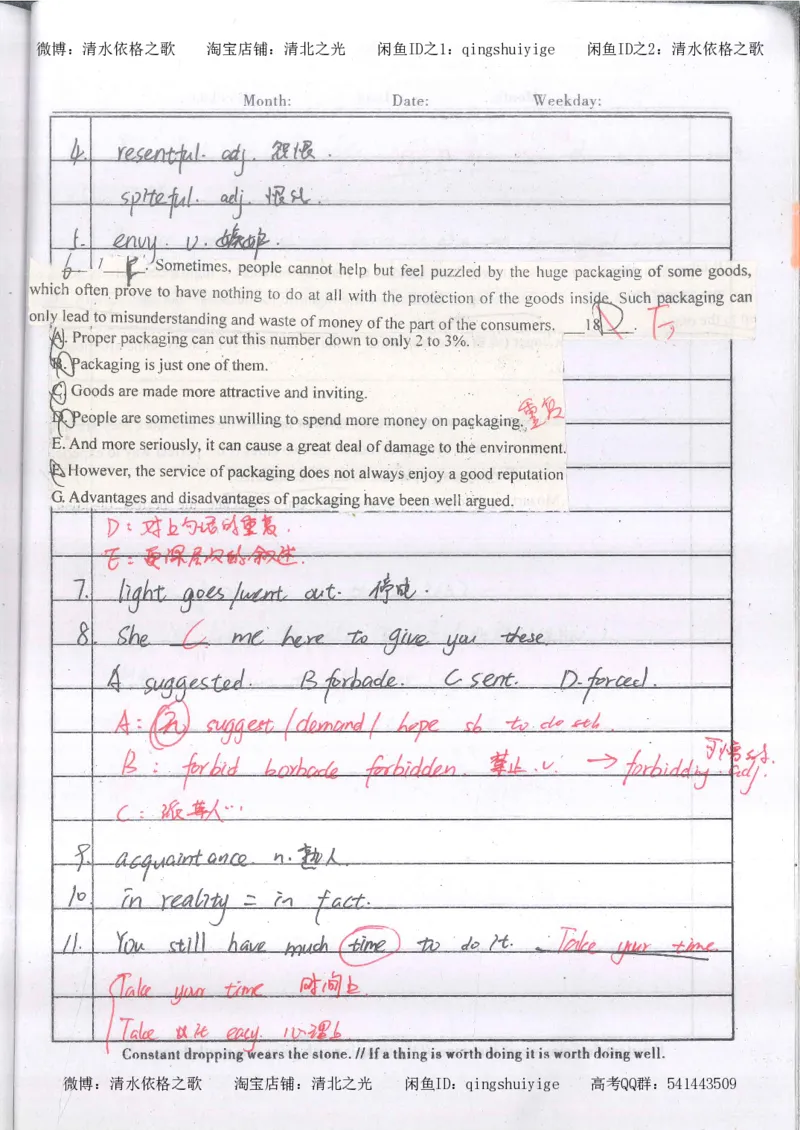 微博：清水依格之歌 淘宝店铺：清北之光 闲鱼ID之1：qingshuiyige 闲鱼ID之2：清水依格之歌
Month: Date: Weekday:
4. resentful. adj. 怨恨.
spiteful. adj. 恨的.
5. envy. v. 嫉妒.
6. Sometimes, people cannot help but feel puzzled by the huge packaging of some goods,
which often prove to have nothing to do at all with the protection of the goods inside. Such packaging can
only lead to misunderstanding and waste of money of the part of the consumers. 18 D. E
A. Proper packaging can cut this number down to only 2 to 3%.
B. Packaging is just one of them.
C. Goods are made more attractive and inviting.
D. People are sometimes unwilling to spend more money on packaging. 重复
E. And more seriously, it can cause a great deal of damage to the environment.
F. However, the service of packaging does not always enjoy a good reputation
G. Advantages and disadvantages of packaging have been well argued.
D：对上句话的重复.
E：更深层次的叙述.
7. light goes/went out. 停电.
8. She C. me here to give you these
A. suggested. B forbade. C sent. D. forced.
A: 无 suggest / demand / hope sb to do sth.
B: forbid borbade forbidden. 禁止. v. → forbidding. adj.
C: 派某人…
9. acquaintance. n. 熟人.
10. in reality = in fact.
11. You still have much time to do it. Take your time
Take your time 时间上
Take it easy. 心理上
Constant dropping wears the stone. // If a thing is worth doing it is worth doing well.
微博：清水依格之歌 淘宝店铺：清北之光 闲鱼ID：qingshuiyige 高考QQ群：541443509